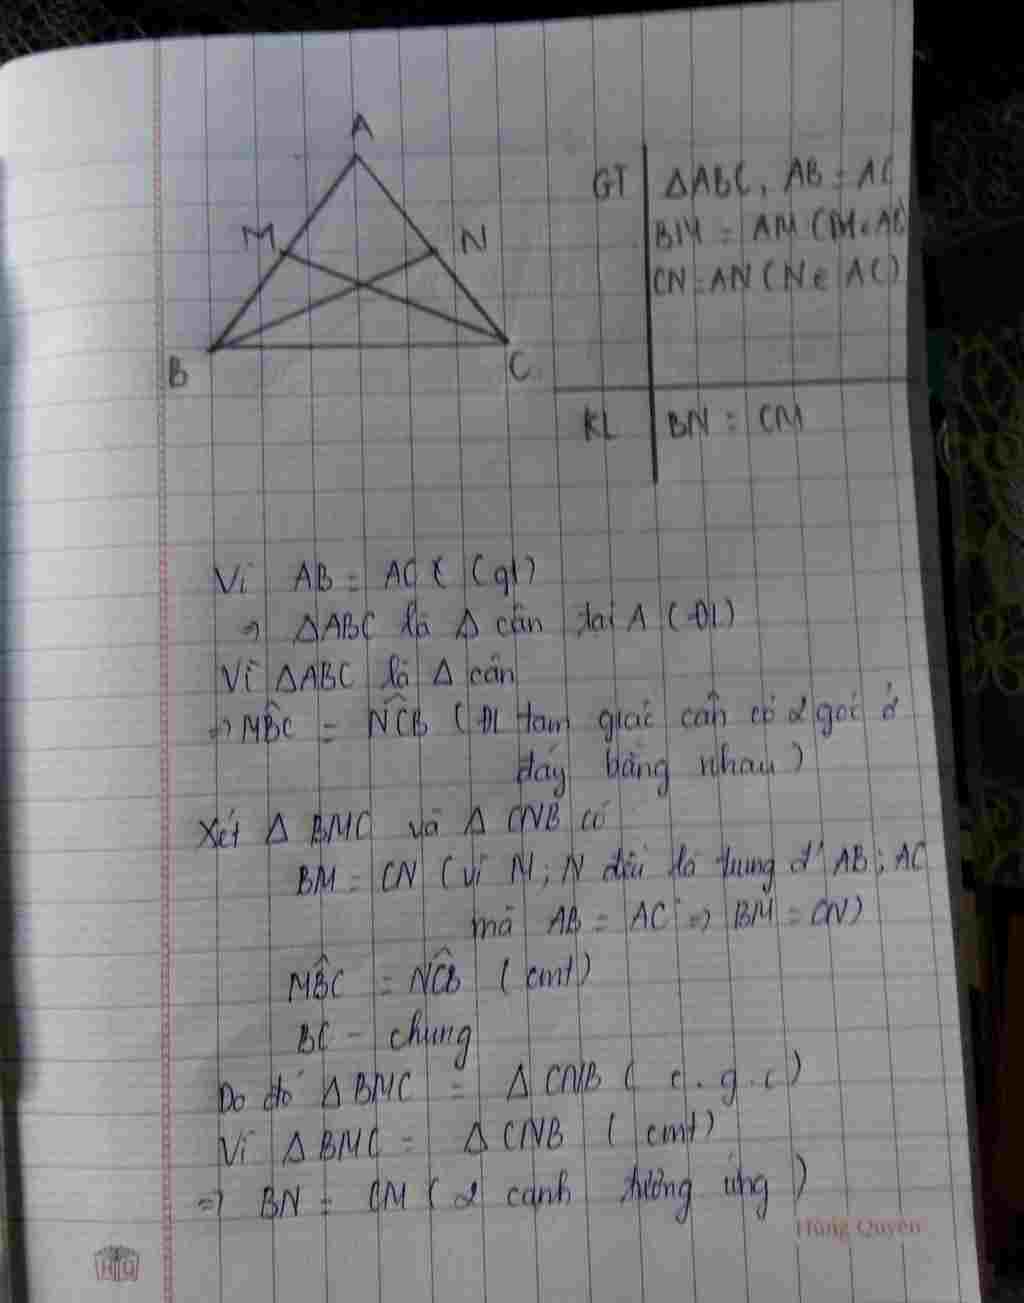 A
M
N
B
C
GT
ΔABC, AB = AC
BM = AM (M ∈ AB
CN = AN (N ∈ AC)
KL
BN = CM
Vì AB = AC (gt)
⇒ ΔABC là Δ cân tại A (ĐL)
Vì ΔABC là Δ cân
⇒ MB̂C = NĈB (ĐL tam giác cân có 2 góc ở
đáy bằng nhau)
Xét Δ BMC và Δ CNB có
BM = CN (vì M; N đều là trung đ' AB; AC
mà AB = AC ⇒ BM = CN)
MB̂C = NĈB (cmt)
BC - chung
Do đó Δ BMC = Δ CNB ( c.g.c)
Vì Δ BMC = Δ CNB (cmt)
⇒ BN = CM ( 2 cạnh tương ứng )
Hồng Quyên
HQ